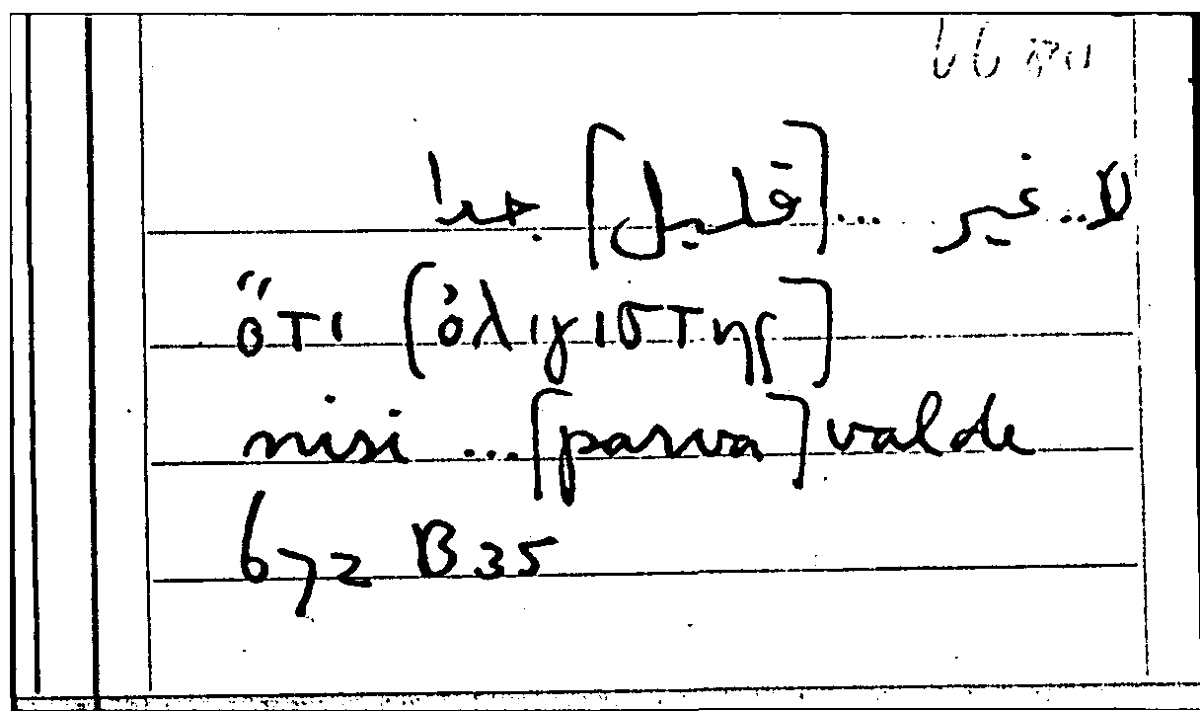 لا .. غير ... [قليل] جدا
ὅτι [ὀλιγιστης]
nisi ... [parva] valde
672 B 35